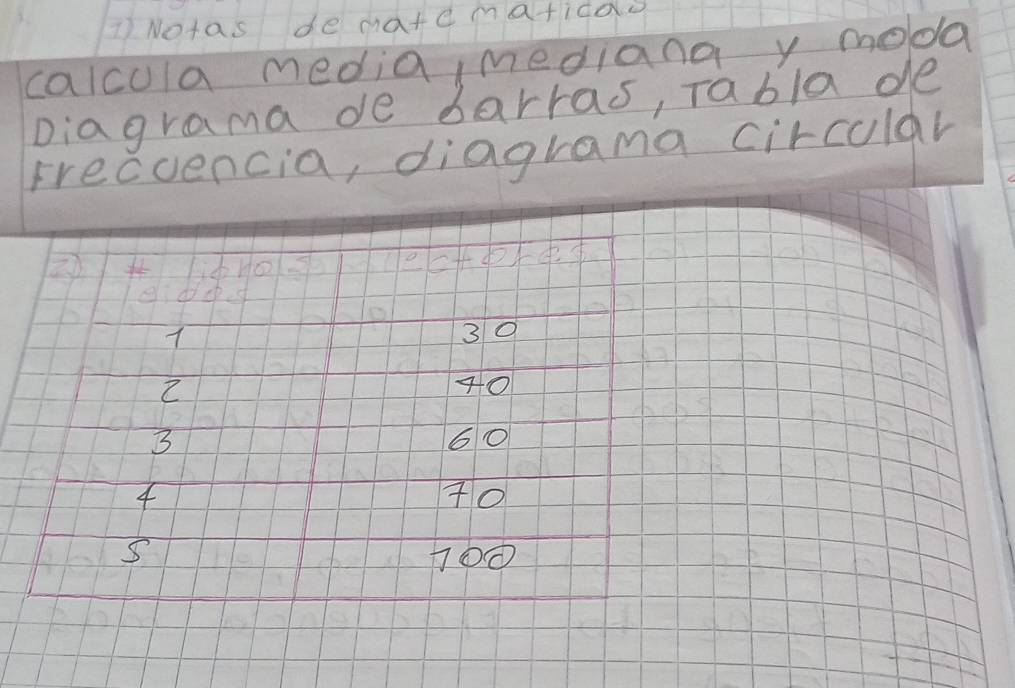 1) Notas de matematicas
calcula media, mediana y moda
Diagrama de barras, Tabla de
Frecuencia, diagrama circular
2) # libros lectores
leidos
1 30
2 40
3 60
4 70
5 100